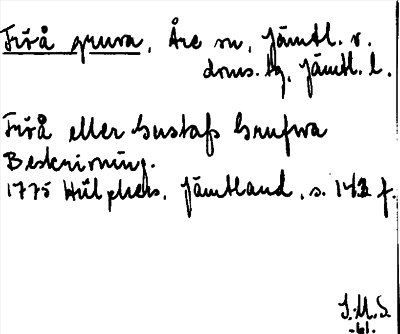 Fröå gruva, Åre sn, Jämtl. v.
doms. tg, Jämtl. l.
Fröå eller Gustafs Grufwa
Beskrivning.
1775 Hülphers, Jämtland, s. 142 f.
J.M.S.
-61.